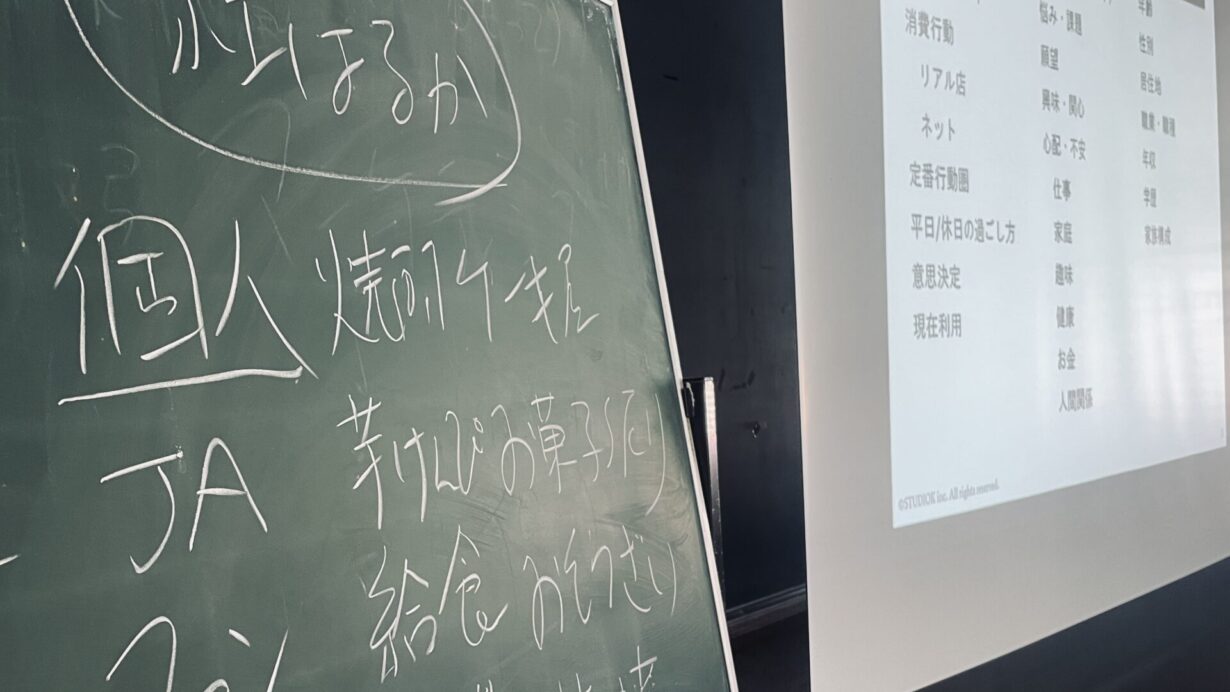 紅はるか
個人
焼酎
JA
芋けんぴ お菓子
給食 おそうざい
消費行動
リアル店
ネット
定番行動圏
平日/休日の過ごし方
意思決定
現在利用
悩み・課題
願望
興味・関心
心配・不安
仕事
家庭
趣味
健康
お金
人間関係
年齢
性別
居住地
職業・職種
年収
学歴
家族構成
©STUDIOK inc. All rights reserved.